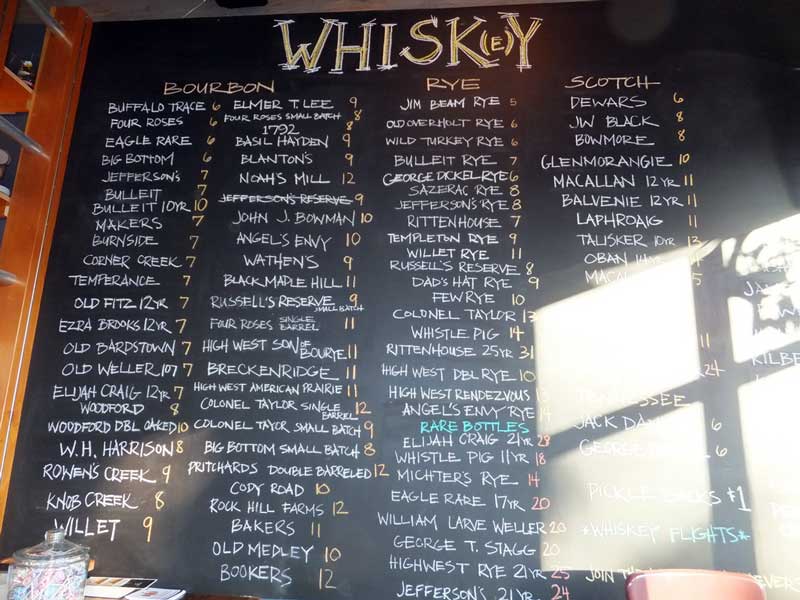 WHISK(E)Y
BOURBON
BUFFALO TRACE 6
FOUR ROSES 6
EAGLE RARE 6
BIG BOTTOM 6
JEFFERSON'S 7
BULLEIT 7
BULLEIT 10YR 10
MAKERS 7
BURNSIDE 7
CORNER CREEK 7
TEMPERANCE 7
OLD FITZ 12YR 7
EZRA BROOKS 12YR 7
OLD BARDSTOWN 7
OLD WELLER 107 7
ELIJAH CRAIG 12YR 7
WOODFORD 8
WOODFORD DBL OAKED 10
W.H. HARRISON 8
ROWEN'S CREEK 9
KNOB CREEK 8
WILLET 9
ELMER T. LEE 9
FOUR ROSES SMALL BATCH 8
1792 8
BASIL HAYDEN 9
BLANTON'S 9
NOAH'S MILL 12
JEFFERSON'S RESERVE 9
JOHN J. BOWMAN 10
ANGEL'S ENVY 10
WATHEN'S 9
BLACK MAPLE HILL 11
RUSSELL'S RESERVE SMALL BATCH 9
FOUR ROSES SINGLE BARREL 11
HIGH WEST SON OF BOURYE 11
BRECKENRIDGE 11
HIGH WEST AMERICAN PRAIRIE 11
COLONEL TAYLOR SINGLE BARREL 12
COLONEL TAYOR SMALL BATCH 9
BIG BOTTOM SMALL BATCH 8
PRITCHARDS DOUBLE BARRELED 12
CODY ROAD 10
ROCK HILL FARMS 12
BAKERS 11
OLD MEDLEY 10
BOOKERS 12
RYE
JIM BEAM RYE 5
OLD OVERHOLT RYE 6
WILD TURKEY RYE 6
BULLEIT RYE 7
GEORGE DICKEL RYE 6
SAZERAC RYE 8
JEFFERSON'S RYE 8
RITTENHOUSE 7
TEMPLETON RYE 9
WILLET RYE 11
RUSSELL'S RESERVE 8
DAD'S HAT RYE 9
FEW RYE 10
COLONEL TAYLOR 13
WHISTLE PIG 14
RITTENHOUSE 25YR 31
HIGH WEST DBL RYE 10
HIGH WEST RENDEZVOUS 13
ANGEL'S ENVY RYE 14
RARE BOTTLES
ELIJAH CRAIG 21YR 28
WHISTLE PIG 11YR 18
MICHTER'S RYE 14
EAGLE RARE 17YR 20
WILLIAM LARVE WELLER 20
GEORGE T. STAGG 20
HIGHWEST RYE 21YR 25
JEFFERSON'S 21YR 24
SCOTCH
DEWARS 6
JW BLACK 8
BOWMORE 8
GLENMORANGIE 10
MACALLAN 12YR 11
BALVENIE 12YR 11
LAPHROAIG 11
TALISKER 10YR 13
OBAN
11
24
TENNESSEE
JACK 6
GEORGE 6
PICKLE BACKS $1
*WHISKEY FLIGHTS*
JOIN THE